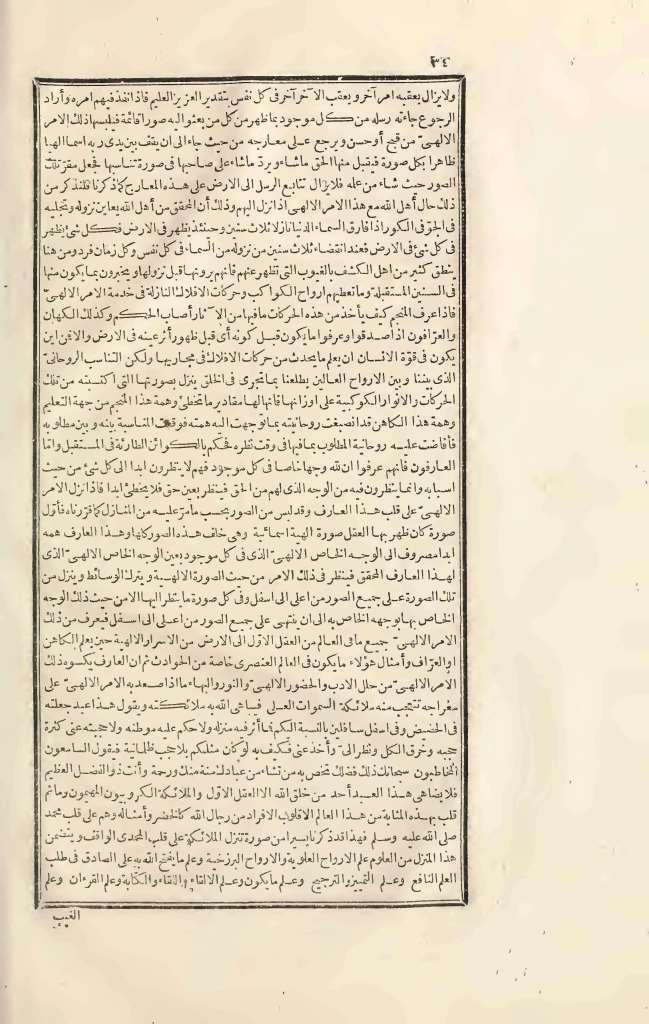 ٣٤
ولا يزال يعقبه امر آخر ويعقب الآخر آخر فى كل نفس بتقدير العزيز العليم فاذا نفذ فيهم امره وأراد
الرجوع جاءته رسله من كل موجود بما ظهر من كل من بعثوا اليه صورا قائمة فيلبسها ذلك الامر
الالهىّ من قبيح أو حسن ويرجع على معارجه من حيث جاء الى ان يقف بين يدى ربه اسما الهيا
ظاهرا بكل صورة فيقبل منها الحق ما شاء ويردّ ما شاء على صاحبها فى صورة تناسبها فجعل مقرّ تلك
الصور حيث شاء من علمه فلا يزال تتابع الرسل الى الارض على هذه المعارج كما ذكرنا فلنذكر من
ذلك حال أهل الله مع هذا الامر الالهىّ اذا نزل اليهم وذلك أن المحقق من أهل الله يعاين نزوله وتخليه
فى الجوّ فى الكور اذا فارق السماء الدنيا نازلا ثلاث سنين وحينئذ يظهر فى الارض فكل شئ يظهر
فى كل شئ فى الارض فعند انقضاء ثلاث سنين من نزوله من السماء فى كل نفس وكل زمان فرد ومن هنا
ينطق كثير من اهل الكشف بالغيوب التى تظهر عنهم فانهم يرونها قبل نزولها ويخبرون بما يكون منها
فى السنين المستقبلة وما تعطيهم ارواح الكواكب وحركات الافلاك النازلة فى خدمة الامر الالهىّ
فاذا عرف المنجم كيف يأخذ من هذه الحركات ما فيها من الآثار أصاب الحكم وكذلك الكهان
والعرّافون اذا صدقوا وعرفوا ما يكون قبل كونه أى قبل ظهور أثر عينه فى الارض والا فمن اين
يكون فى قوّة الانسان ان يعلم ما يحدث من حركات الافلاك فى مجاريها ولكن التناسب الروحانىّ
الذى بيننا وبين الارواح العالين يطلعنا بما تجرى فى الخلق ينزل بصورتها التى اكتسبته من تلك
الحركات والانوار الكوكبية على اوزانها فانها لها مقادير ما تخطئ وهمة هذا المنجم من جهة التعليم
وهمة هذا الكاهن قد انصبغت روحانيته بما توجهت اليه همته فوقعت المناسبة بينه وبين مطلوبه
فأفاضت عليه روحانية المطلوب بما فيها فى وقت نظره فحكم بالكوائن الطارئة فى المستقبل وامّا
العارفون فانهم عرفوا ان لله وجها خاصا فى كل موجود فهم لا ينظرون ابدا الى كل شئ من حيث
اسبابه وانما ينظرون فيه من الوجه الذى لهم من الحق فينظر بعين حق فلا يخطئ ابدا فاذا نزل الامر
الالهىّ على قلب هذا العارف وقد لبس من الصور بحسب ما مرّ عليه من المنازل كما قررناه فأوّل
صورة كان ظهر بها العقل صورة الهية اسمائية وهى خلف هذه الصور كلها وهذا العارف همه
ابدا مصروف الى الوجه الخاص الالهىّ الذى فى كل موجود بعين الوجه الخاص الالهىّ الذى
لهذا العارف المحقق فينظر فى ذلك الامر من حيث الصورة الالهية ويترك الوسائط وينزل من
تلك الصورة على جميع الصور من اعلى الى اسفل وفى كل صورة ما ينظر اليها الا من حيث ذلك الوجه
الخاص بها بوجهه الخاص به الى ان ينتهى على جميع الصور من اعلى الى اسفل فيعرف من ذلك
الامر الالهىّ جميع ما فى العالم من العقل الاوّل الى الارض من الاسرار الالهية حين يعلم الكاهن
او العرّاف وأمثال هؤلاء ما يكون فى العالم العنصرى خاصة من الحوادث ثم ان العارف يكسو ذلك
الامر الالهىّ من حلل الادب والحضور الالهىّ والنور والبهاء ما اذا صعد به الامر الالهىّ على
معراجه تتعجب منه ملائكة السموات العلى فيباهى الله به ملائكته ويقول هذا عبد جعلته
فى الحضيض وفى اسفل سافلين بالنسبة اليكم فما أثر فيه منزله ولا حكم عليه موطنه ولا حجبته عنى كثرة
حجبه وخرق الكل ونظر الىّ وأخذ عنى فكيف به لو كان مثلكم بلا حجب ظلمانية فيقول السامعون
المخاطبون سبحانك ذلك فضلك تختص به من تشاء من عبادك منة منك ورحمة وأنت ذو الفضل العظيم
فلا يضاهى هذا العبد أحد من خلق الله الا العقل الاوّل والملائكة الكروبيون المهيمون وما ثم
قلب بهذه المثابة من هذا العالم الا قلوب الافراد من رجال الله كالخضر وأمثاله وهم على قلب محمد
صلى الله عليه وسلم فهذا قد ذكرنا يسيرا من صورة تنزل الملائكة على قلب المحمدى الواقف ويتضمن
هذا المنزل من العلوم علم الارواح العلوية والارواح البرزخية وعلم ما يفتح الله به على الصادق فى طلب
العلم النافع وعلم التمييز والترجيح وعلم ما يكون وعلم الالقاء واللقاء والكتابة وعلم القرءان وعلم
الغيب